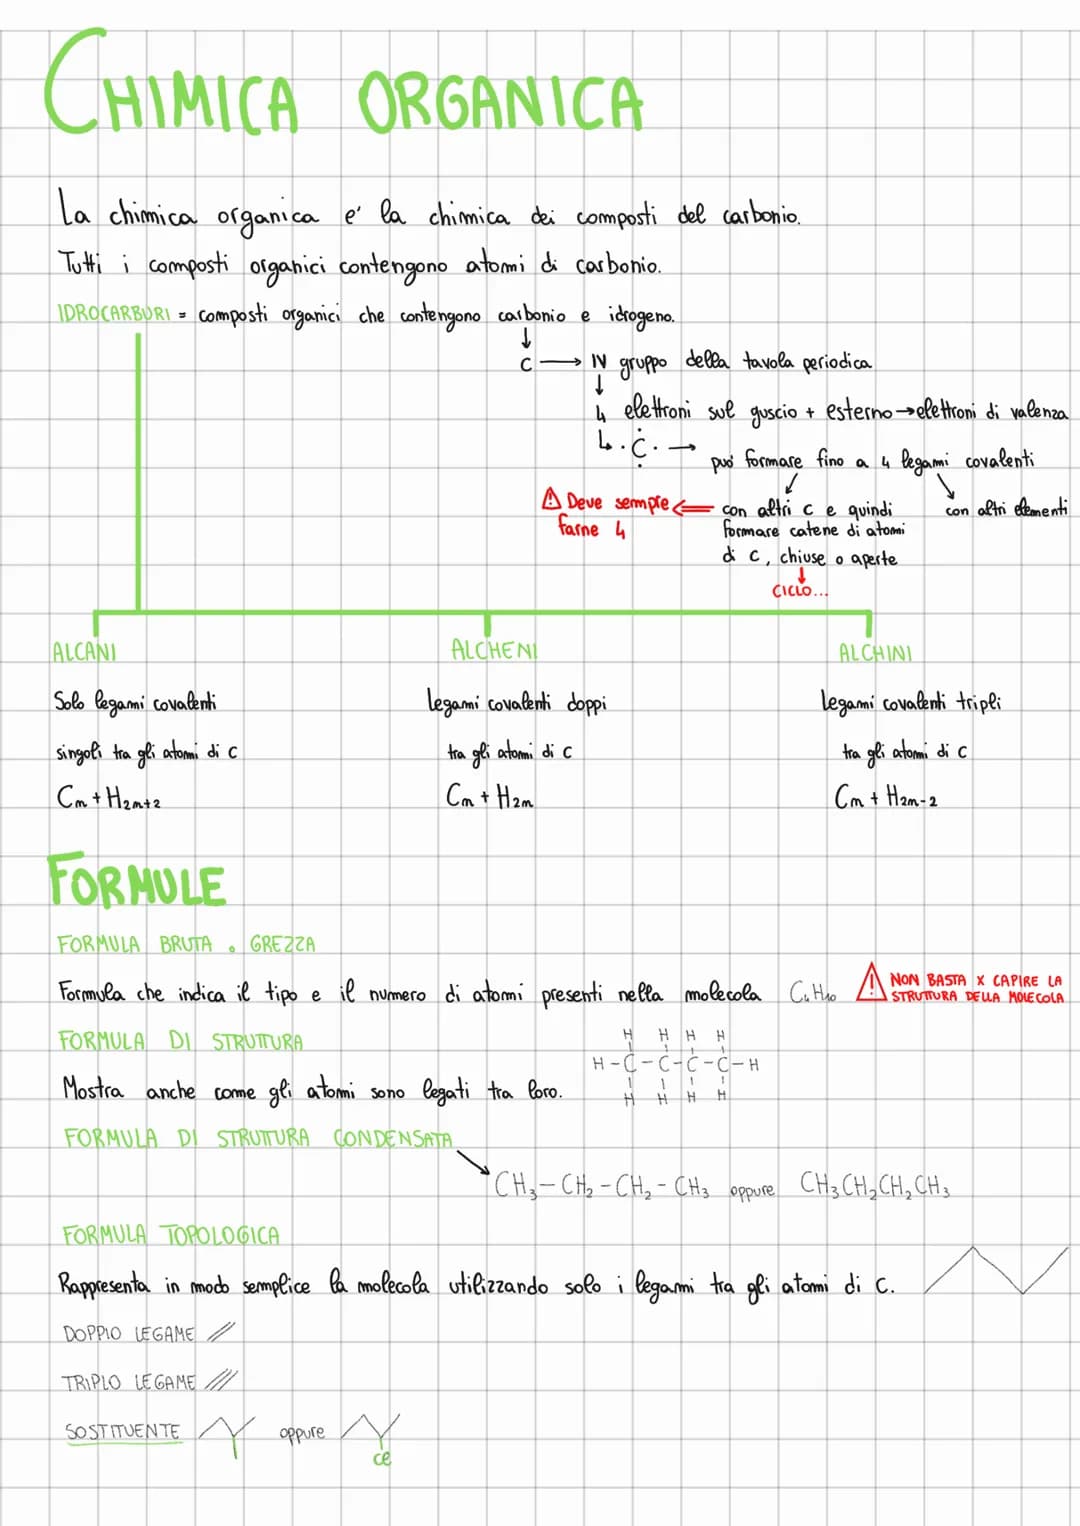 CHIMICA ORGANICA
La chimica organica e' la chimica dei composti del carbonio.
Tutti i composti organici contengono atomi di carbonio.
IDROCARBURI = composti organici che contengono carbonio e idrogeno.
↓
C → IV gruppo della tavola periodica
↓
4 elettroni sul guscio + esterno → elettroni di valenza
↳ ·C· → può formare fino a 4 legami covalenti
⚠ Deve sempre farne 4 ⇐ con altri C e quindi
formare catene di atomi
di C, chiuse o aperte
con altri elementi
↓
CICLO...
ALCANI
Solo legami covalenti
singoli tra gli atomi di C
Cn + H2n+2
ALCHENI
Legami covalenti doppi
tra gli atomi di C
Cn + H2n
ALCHINI
Legami covalenti tripli
tra gli atomi di C
Cn + H2n-2
FORMULE
FORMULA BRUTA o GREZZA
Formula che indica il tipo e il numero di atomi presenti nella molecola C4H10
⚠ NON BASTA X CAPIRE LA
STRUTTURA DELLA MOLECOLA
FORMULA DI STRUTTURA
H H H H
H-C-C-C-C-H
H H H H
Mostra anche come gli atomi sono legati tra loro.
FORMULA DI STRUTTURA CONDENSATA
CH3-CH2-CH2-CH3 oppure CH3CH2CH2CH3
FORMULA TOPOLOGICA
Rappresenta in modo semplice la molecola utilizzando solo i legami tra gli atomi di C.
DOPPIO LEGAME //
TRIPLO LEGAME ///
SOSTITUENTE oppure
Cl